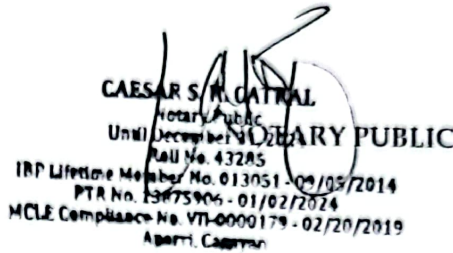 CAESAR S. R. CATRAL
Notary Public
Until December 31,
NOTARY PUBLIC
Roll No. 43285
IBP Lifetime Member No. 013051 - 09/05/2014
PTR No. 13875906 - 01/02/2024
MCLE Compliance No. VII-0000179 - 02/20/2019
Aparri, Cagayan